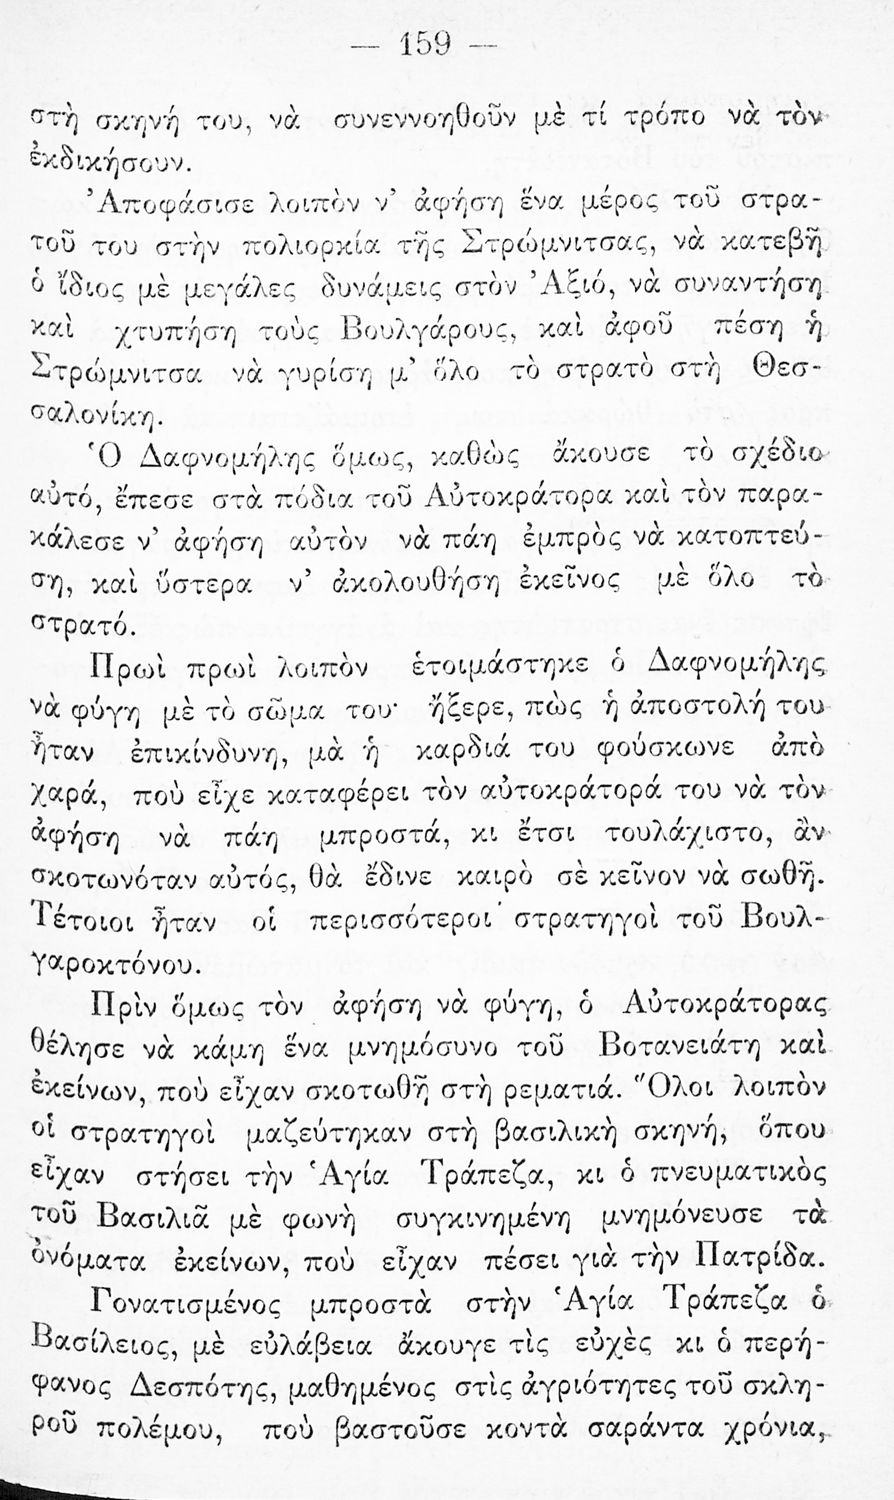 — 159 —
στὴ σκηνή του, νὰ συνεννοηθοῦν μὲ τί τρόπο νὰ τὸν
ἐκδικήσουν.
Ἀποφάσισε λοιπὸν ν’ ἀφήση ἕνα μέρος τοῦ στρα-
τοῦ του στὴν πολιορκία τῆς Στρώμνιτσας, νὰ κατεβῆ
ὁ ἴδιος μὲ μεγάλες δυνάμεις στὸν Ἀξιό, νὰ συναντήση
καὶ χτυπήση τοὺς Βουλγάρους, καὶ ἀφοῦ πέση ἡ
Στρώμνιτσα νὰ γυρίση μ’ ὅλο τὸ στρατὸ στὴ Θεσ-
σαλονίκη.
Ὁ Δαφνομήλης ὅμως, καθὼς ἄκουσε τὸ σχέδιο
αὐτό, ἔπεσε στὰ πόδια τοῦ Αὐτοκράτορα καὶ τὸν παρα-
κάλεσε ν’ ἀφήση αὐτὸν νὰ πάη ἐμπρὸς νὰ κατοπτεύ-
ση, καὶ ὕστερα ν’ ἀκολουθήση ἐκεῖνος μὲ ὅλο τὸ
στρατό.
Πρωὶ πρωὶ λοιπὸν ἑτοιμάστηκε ὁ Δαφνομήλης
νὰ φύγη μὲ τὸ σῶμα του· ἤξερε, πὼς ἡ ἀποστολή του
ἦταν ἐπικίνδυνη, μὰ ἡ καρδιά του φούσκωνε ἀπὸ
χαρά, ποὺ εἶχε καταφέρει τὸν αὐτοκράτορά του νὰ τὸν
ἀφήση νὰ πάη μπροστά, κι ἔτσι τουλάχιστο, ἂν
σκοτωνόταν αὐτός, θὰ ἔδινε καιρὸ σὲ κεῖνον νὰ σωθῆ.
Τέτοιοι ἦταν οἱ περισσότεροι στρατηγοὶ τοῦ Βουλ-
γαροκτόνου.
Πρὶν ὅμως τὸν ἀφήση νὰ φύγη, ὁ Αὐτοκράτορας
θέλησε νὰ κάμη ἕνα μνημόσυνο τοῦ Βοτανειάτη καὶ
ἐκείνων, ποὺ εἶχαν σκοτωθῆ στὴ ρεματιά. Ὅλοι λοιπὸν
οἱ στρατηγοὶ μαζεύτηκαν στὴ βασιλικὴ σκηνή, ὅπου
εἶχαν στήσει τὴν Ἁγία Τράπεζα, κι ὁ πνευματικὸς
τοῦ Βασιλιᾶ μὲ φωνὴ συγκινημένη μνημόνευσε τὰ
ὀνόματα ἐκείνων, ποὺ εἶχαν πέσει γιὰ τὴν Πατρίδα.
Γονατισμένος μπροστὰ στὴν Ἁγία Τράπεζα ὁ
Βασίλειος, μὲ εὐλάβεια ἄκουγε τὶς εὐχὲς κι ὁ περή-
φανος Δεσπότης, μαθημένος στὶς ἀγριότητες τοῦ σκλη-
ροῦ πολέμου, ποὺ βαστοῦσε κοντὰ σαράντα χρόνια,